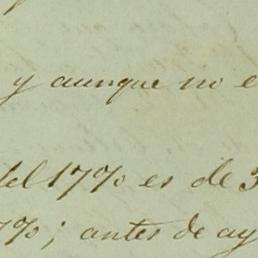 y aunque no e
del 17% es de 3
7%; antes de ay